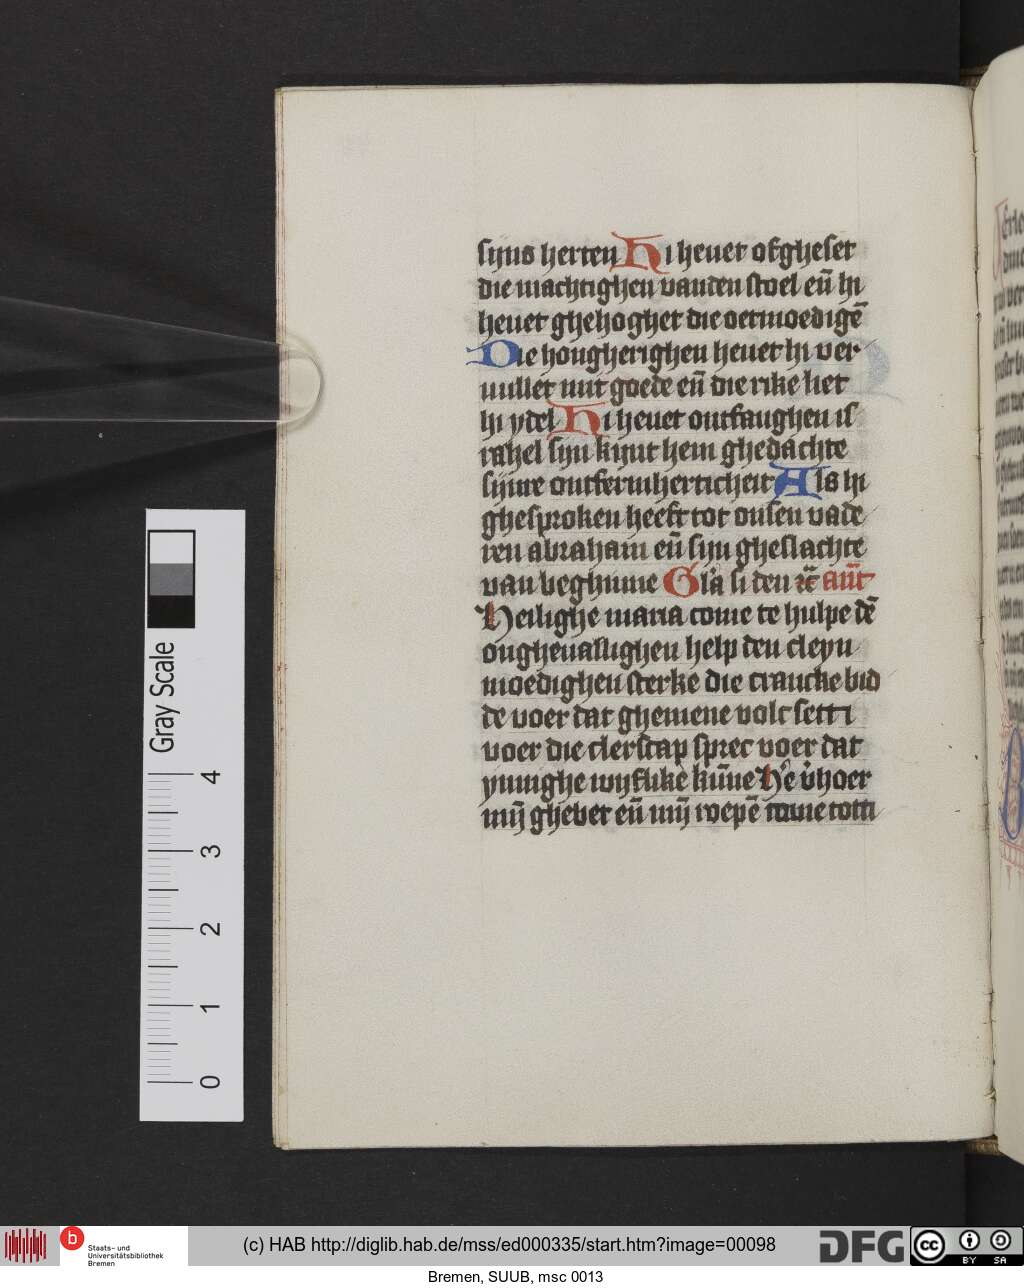 sijns herten Hi heuet ofgheset
die machtighen vanden stoel eñ hi
heuet ghehoghet die oetmoedigē
Die hongherighen heuet hi ver
uullet mit goede eñ die rike liet
hi ydel Hi heuet ontfanghen is
rahel sijn kijnt hem ghedachte
sijnre ontfermherticheit Als hi
ghesproken heeft tot onsen vade
ren abraham eñ sijn gheslachte
van beghinne Gla si den ꝛc̄ an̄t
Heilighe maria come te hulpe dē
onghevallighen help den cleyn
moedighen sterke die crancke bid
de voer dat ghemene volc sett i
voer die clerscap sprec voer dat
ynnighe wijflike kūne He v̄hoer
mij̄ ghebet eñ mij̄ roepē come totti
Gray Scale
4
3
2
1
0
b
Staats- und
Universitätsbibliothek
Bremen
(c) HAB http://diglib.hab.de/mss/ed000335/start.htm?image=00098
DFG
cc
BY SA
Bremen, SUUB, msc 0013